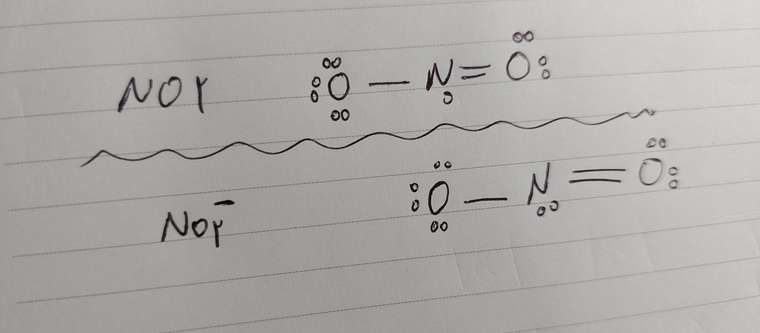 NO۲ :O — N = O:
NO۲⁻ :O — N = O: